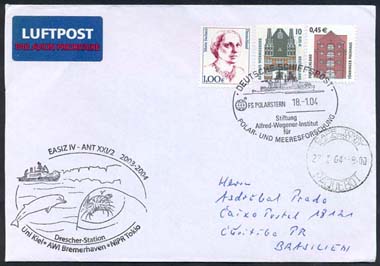 LUFTPOST
PAR AVION PRIORITAIRE
1,00€
10
0,45€
DEUTSCHE SCHIFFSPOST
FS POLARSTERN 18.-1.04
Stiftung
Alfred-Wegener-Institut
für
POLAR- UND MEERESFORSCHUNG
EASIZ IV - ANT XXI/2 2003-2004
Drescher-Station
Uni Kiel • AWI Bremerhaven • NIPR Tokio
Herrn
Asdrúbal Prado
Caixa Postal
Curitiba PR
BRASILIEN